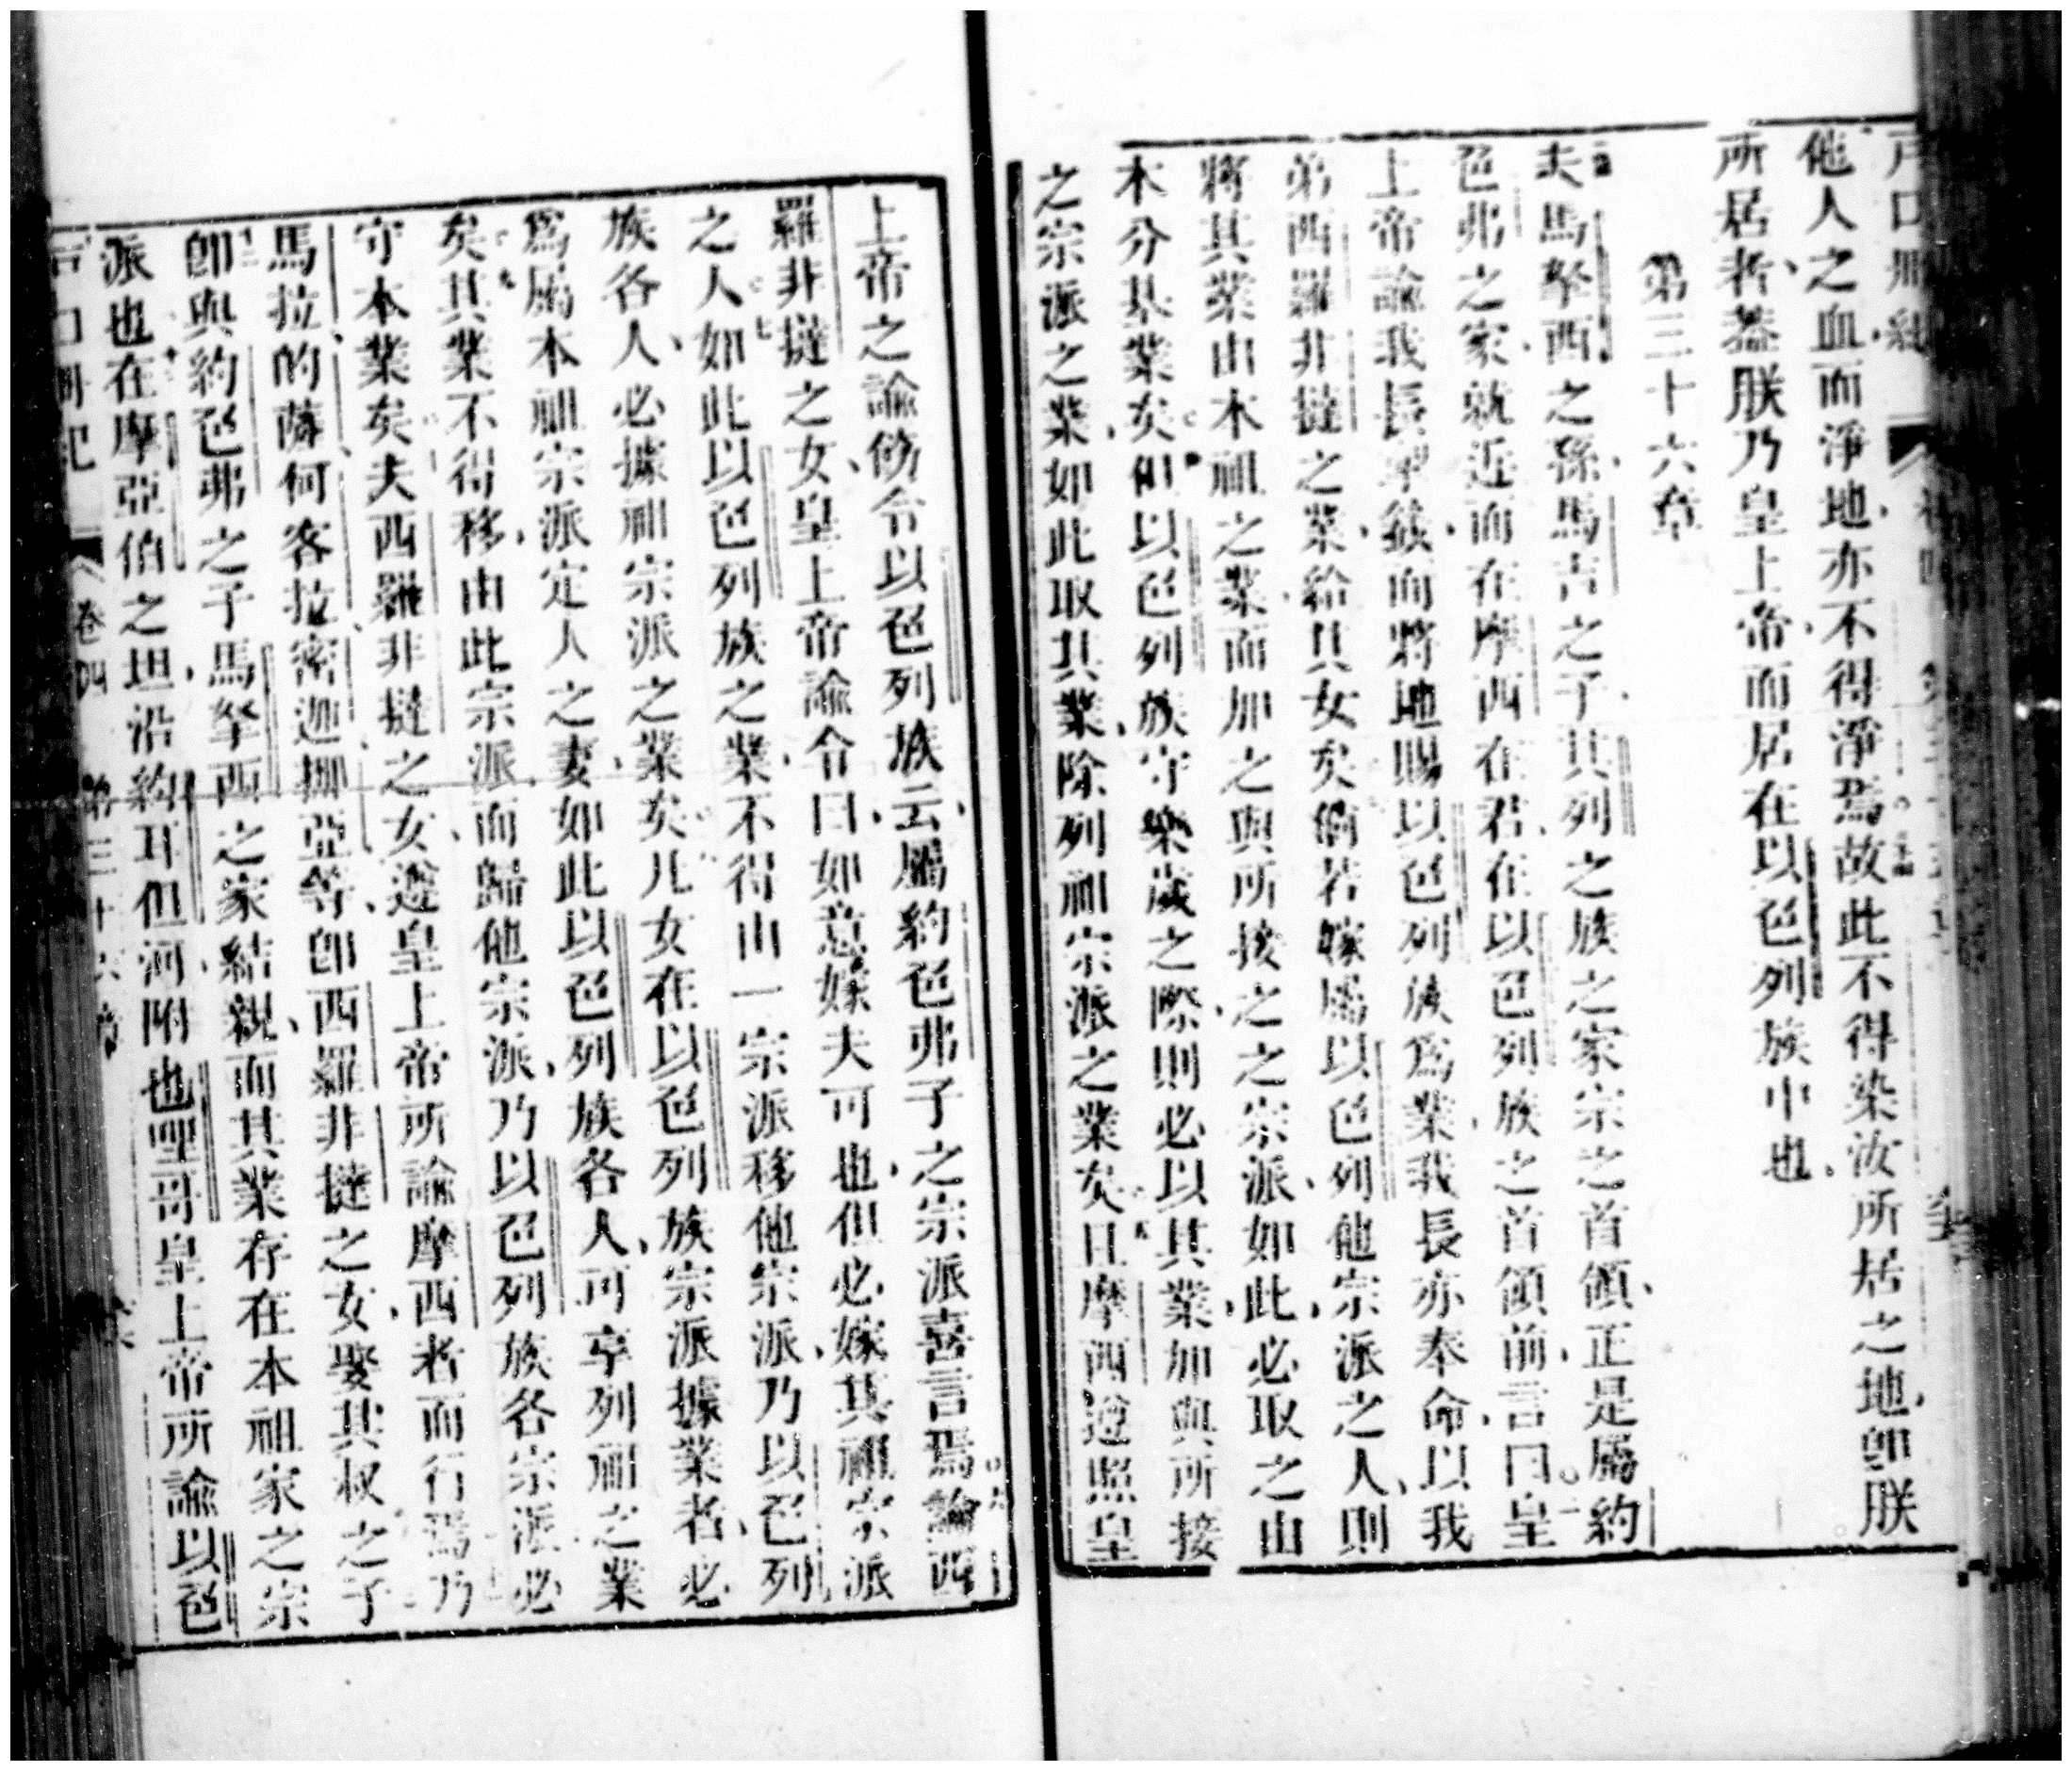 戶口冊紀
他人之血而淨地亦不得淨焉故此不得染汝所居之地卽朕
所居者蓋朕乃皇上帝而居在以色列族中也
第三十六章
夫馬拏西之孫馬吉之子其列之族之家宗之首領正是屬約
色弗之家就近而在摩西在君在以色列族之首領前言曰皇
上帝諭我長爭鬮而將地賜以色列族爲業我長亦奉命以我
弟西羅非撻之業給其女矣倘若嫁屬以色列他宗派之人則
將其業由本祖之業而加之與所接之之宗派如此必取之由
本分基業矣但以色列族守樂歲之際則必以其業加與所接
之宗派之業如此取其業除列祖宗派之業矣且摩西遵照皇
上帝之諭飭令以色列族云屬約色弗子之宗派喜言焉論西
羅非撻之女皇上帝諭令曰如意嫁夫可也但必嫁其祖宗派
之人如此以色列族之業不得由一宗派移他宗派乃以色列
族各人必據祖宗派之業矣凡女在以色列族宗派據業者必
爲屬本祖宗派定人之妻如此以色列族各人可享列祖之業
矣其業不得移由此宗派而歸他宗派乃以色列族各宗派必
守本業矣夫西羅非撻之女遵皇上帝所諭摩西者而行焉乃
馬拉的薩何客拉密迦挪亞等卽西羅非撻之女娶其叔之子
卽與約色弗之子馬拏西之家結親而其業存在本祖家之宗
派也在摩亞伯之坦沿約耳但河附也哩哥皇上帝所諭以色
戶口冊紀 卷四 第三十六章